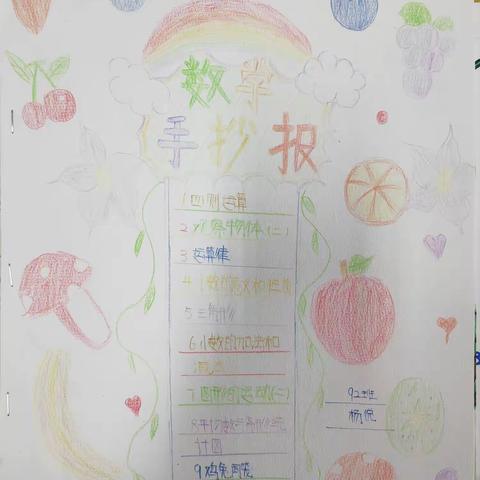 数学
手抄报
1四则运算
2观察物体(二)
3运算律
4小数的意义和性质
5三角形
6小数的加法和
减法
7图形的运动(二)
8平均数与条形统
计图
9鸡兔同笼